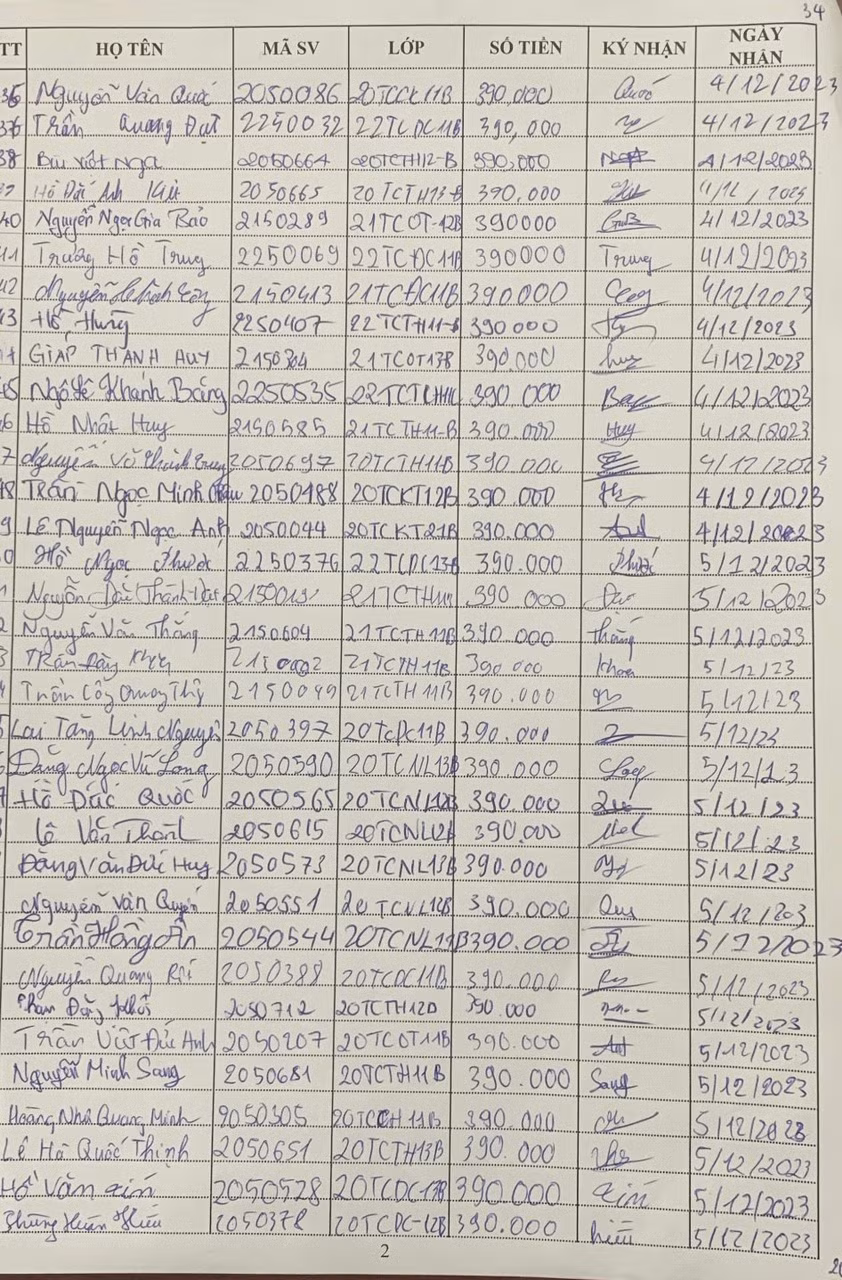 34
TT HỌ TÊN MÃ SV LỚP SỐ TIỀN KÝ NHẬN NGÀY NHẬN
36 Nguyễn Văn Quốc 2050086 20TCCK11B 390.000 Quốc 4/12/2023
37 Trần Quang Đạt 2250032 22TCDC11B 390,000 4/12/2023
38 Bùi Viết Nga 2050664 20TCTH12-B 390,000 Nga 4/12/2023
Hồ Đắc Anh Kiệt 2050665 20TCTH13-B 390,000 4/12/2023
40 Nguyễn Ngọc Gia Bảo 2150289 21TCOT-12B 390000 4/12/2023
41 Trương Hồ Trung 2250069 22TCĐC11B 390000 Trung 4/12/2023
42 Nguyễn 2150413 21TCĐC11B 390000 4/12/2023
43 Hồ Hưng 2250407 22TCTH11-B 390000 4/12/2023
GIÁP THANH HUY 2150304 21TCOT13B 390.000 huy 4/12/2023
45 Ngô Lê Khánh Băng 2250535 390.000 4/12/2023
6 Hồ Nhật Huy 2150585 21TCTH11-B 390.000 Huy 4/12/2023
7 Nguyễn Võ 2050697 20TCTH11B 390.000 4/12/2023
48 Trần Ngọc Minh Châu 2050188 20TCKT12B 390.000 4/12/2023
9 Lê Nguyễn Ngọc Anh 2050044 20TCKT21B 390.000 Anh 4/12/2023
0 Hồ Ngọc Phước 2250376 22TCDC13B 390.000 Phước 5/12/2023
1 Nguyễn Đắc Thành Đạt 390 000 5/12/2023
2 Nguyễn Văn Thắng 2150604 21TCTH11B 390.000 Thắng 5/12/2023
3 Trần Đăng Khoa 2150002 21TCTH11B 390.000 khoa 5/12/23
4 Trần Công Quang Thy 2150049 21TCTH11B 390.000 5/12/23
5 Lai Tăng Linh Nguyên 2050397 20TCDC11B 390.000 5/12/23
6 Đặng Ngọc Vũ Long 2050590 20TCNL13B 390.000 Long 5/12/23
7 Hồ Đức Quốc 2050565 20TCNL12B 390.000 5/12/23
Lê Văn Thành 2050615 390.000 5/12/23
Đặng Văn Đức Huy 2050573 20TCNL13B 390.000 5/12/23
Nguyễn Văn Quyền 2050551 20TCNL12B 390.000 5/12/203
Trần Hồng Ân 2050544 20TCNL13B 390.000 5/12/2023
Nguyễn Quang Rôi 2050388 20TCDC11B 390.000 5/12/2023
Phạm Đăng Khôi 2050712 20TCTH12D 390.000 5/12/2023
Trần Viết Đức Anh 2050207 20TCOT11B 390.000 Anh 5/12/2023
Nguyễn Minh Sang 2050681 20TCTH11B 390.000 Sang 5/12/2023
Hoàng Nhả Quang Minh 2050305 20TCCH11B 390.000 5/12/2023
Lê Hà Quốc Thịnh 2050651 20TCTH13B 390.000 5/12/2023
Hồ Văn xin 2050528 20TCDC13B 390.000 xin 5/12/2023
Phùng Hiếu 2050378 20TCDC-12B 390.000 hiếu 5/12/2023
2